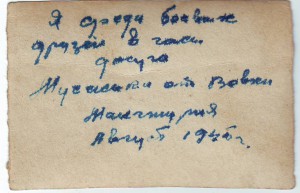 Я среди боевых
друзей в часы
досуга
от Вовки
Манчжурия
Август 194 г.